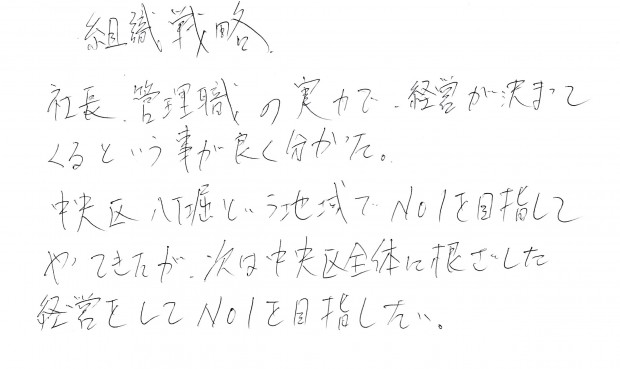 組織戦略
社長、管理職の実力で、経営が決まって
くるという事が良く分かった。
中央区八丁堀という地域でNo1を目指して
やってきたが、次は中央区全体に根ざした
経営をしてNo1を目指したい。